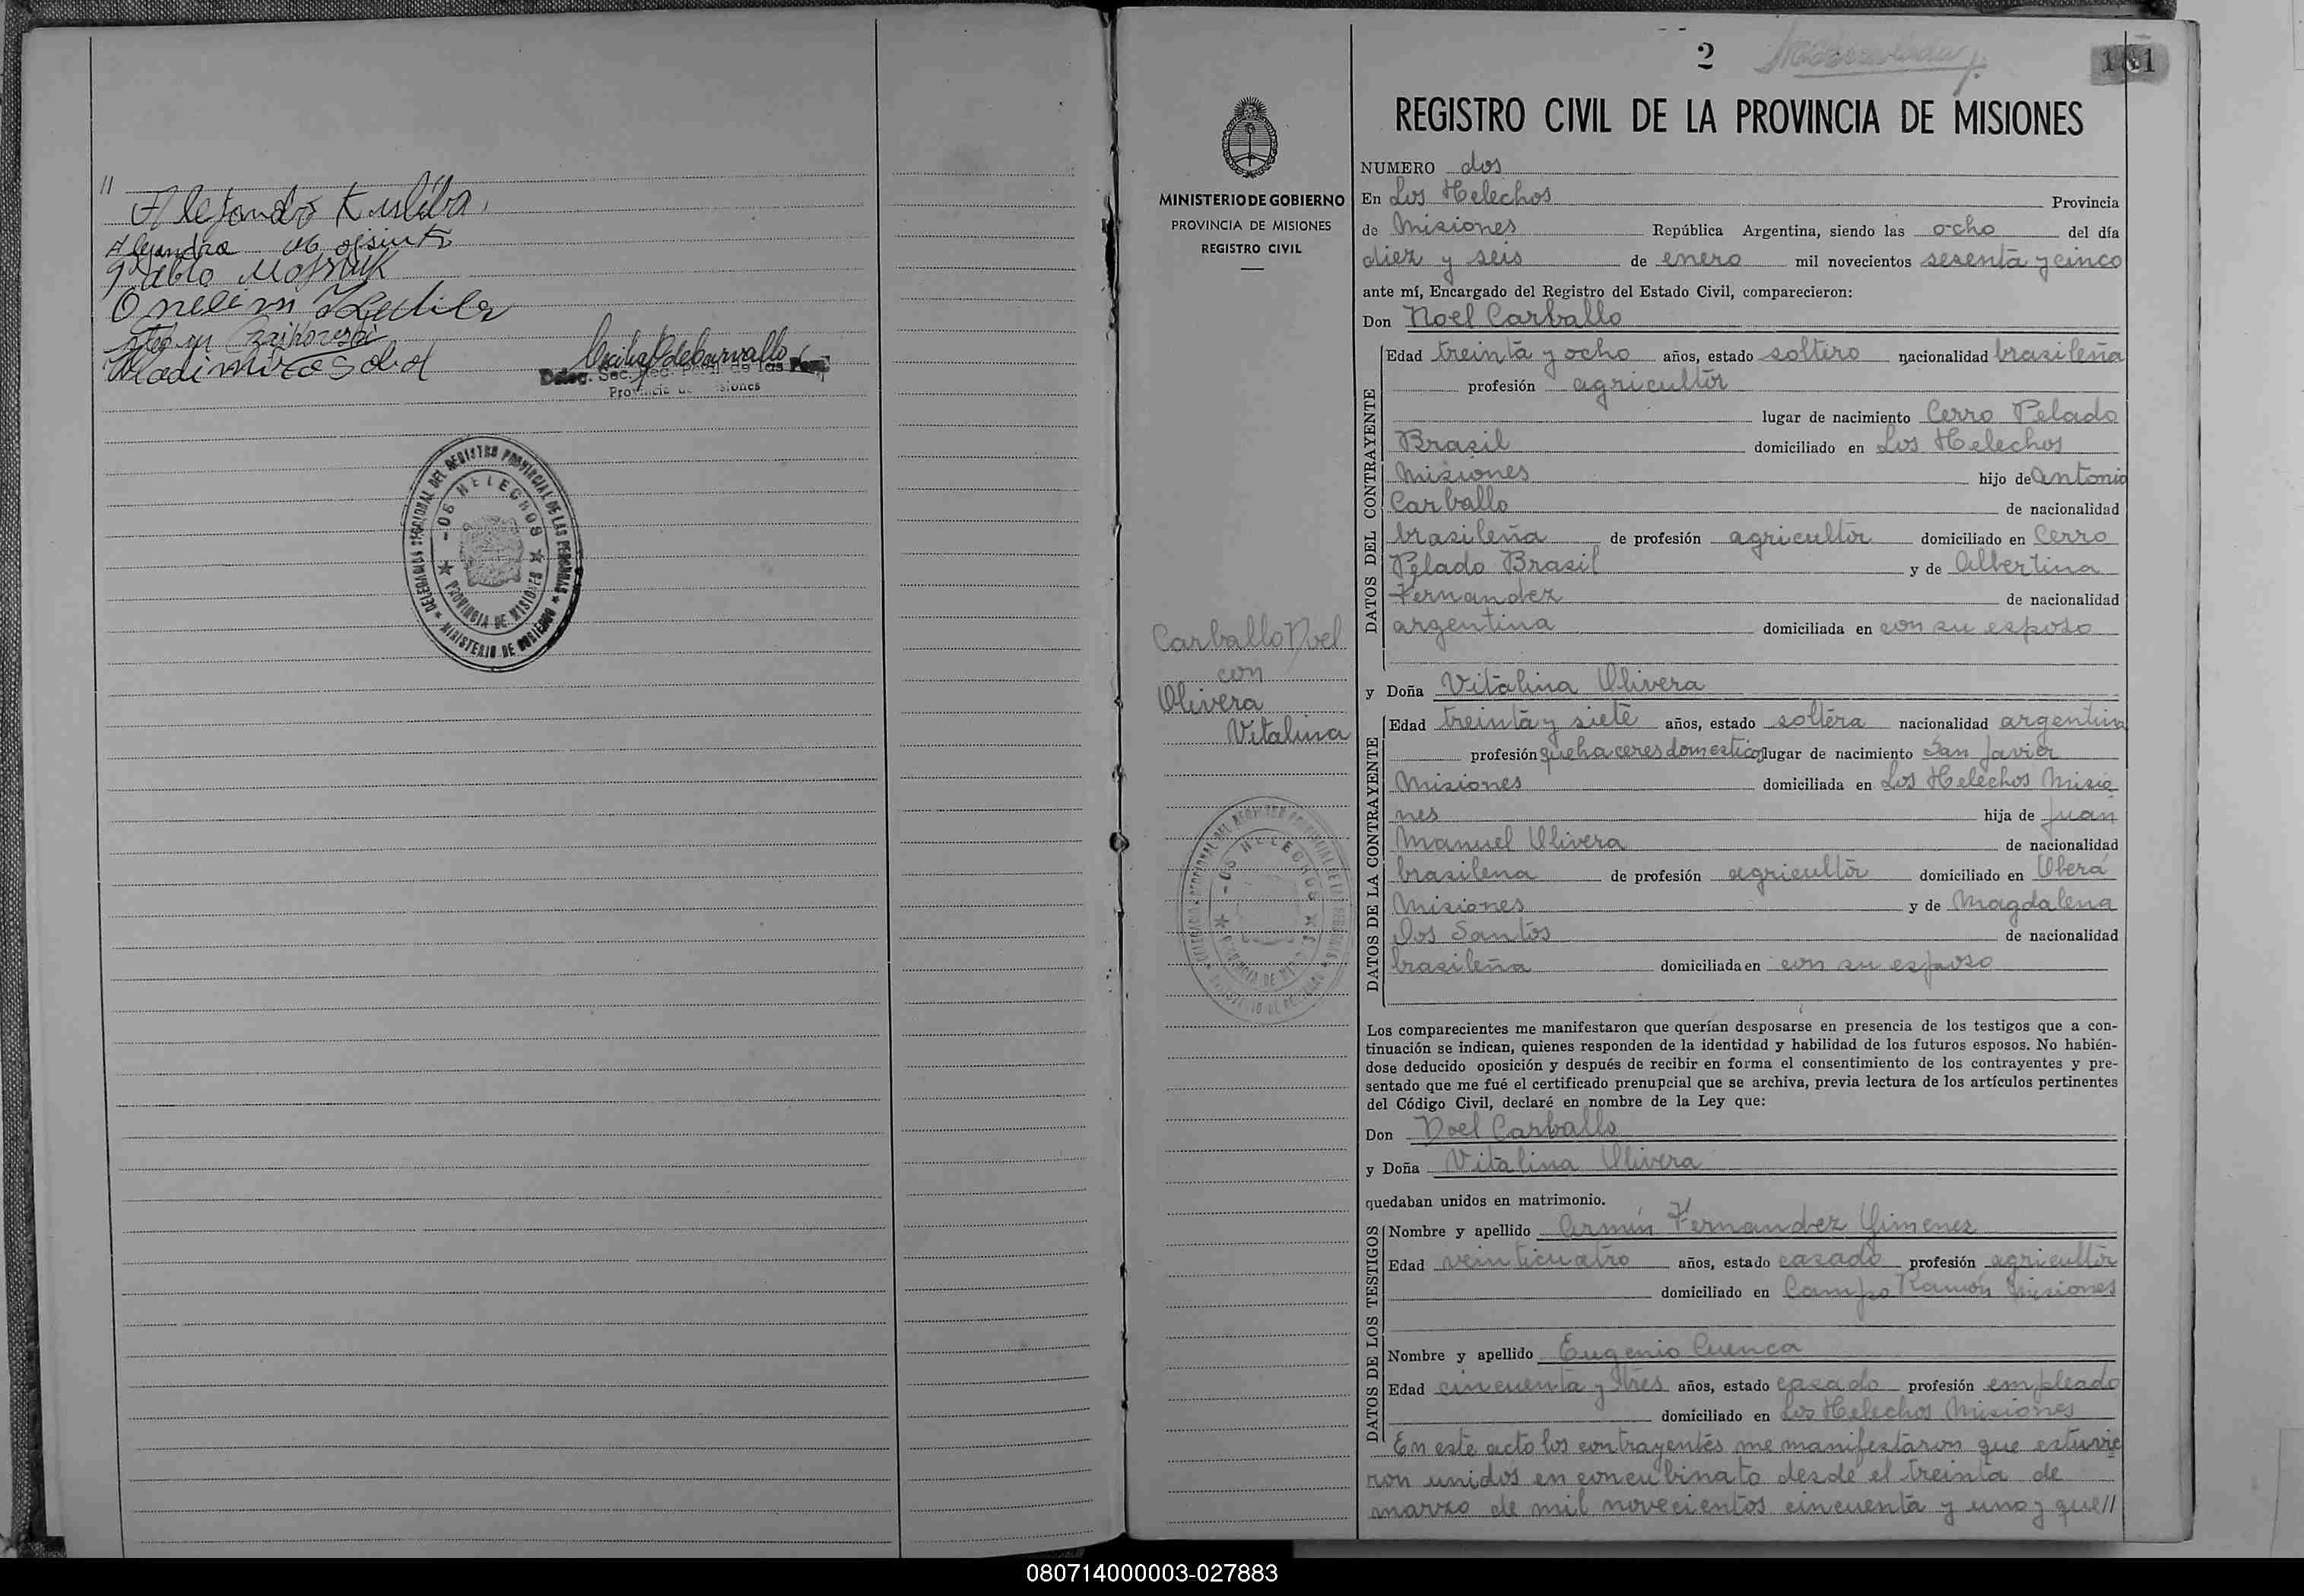 //
Alejandro
Alejandra
Pablo
Deleg. Sec. Reg. Prov. de las Pers.
Provincia de Misiones
DELEGADOS SECCIONAL DEL REGISTRO PROVINCIAL DE LAS PERSONAS
-06 HELECHOS
PROVINCIA DE MISIONES
MINISTERIO DE GOBIERNO
MINISTERIO DE GOBIERNO
PROVINCIA DE MISIONES
REGISTRO CIVIL
Carballo Noel
con
Olivera
Vitalina
2
181
REGISTRO CIVIL DE LA PROVINCIA DE MISIONES
NUMERO dos
En Los Helechos Provincia
de Misiones República Argentina, siendo las ocho del día
diez y seis de enero mil novecientos sesenta y cinco
ante mí, Encargado del Registro del Estado Civil, comparecieron:
Don Noel Carballo
DATOS DEL CONTRAYENTE
Edad treinta y ocho años, estado soltero nacionalidad brasileña
profesión agricultor
lugar de nacimiento Cerro Pelado
Brasil domiciliado en Los Helechos
Misiones hijo de Antonio
Carballo de nacionalidad
brasileña de profesión agricultor domiciliado en Cerro
Pelado Brasil y de Albertina
Fernandez de nacionalidad
argentina domiciliada en con su esposo
y Doña Vitalina Olivera
DATOS DE LA CONTRAYENTE
Edad treinta y siete años, estado soltera nacionalidad argentina
profesión quehaceres domesticos lugar de nacimiento San Javier
Misiones domiciliada en Los Helechos Misio
nes hija de Juan
Manuel Olivera de nacionalidad
brasilena de profesión agricultor domiciliado en Oberá
Misiones y de Magdalena
Dos Santos de nacionalidad
brasileña domiciliada en con su esposo
Los comparecientes me manifestaron que querían desposarse en presencia de los testigos que a con-
tinuación se indican, quienes responden de la identidad y habilidad de los futuros esposos. No habién-
dose deducido oposición y después de recibir en forma el consentimiento de los contrayentes y pre-
sentado que me fué el certificado prenupcial que se archiva, previa lectura de los artículos pertinentes
del Código Civil, declaré en nombre de la Ley que:
Don Noel Carballo
y Doña Vitalina Olivera
quedaban unidos en matrimonio.
DATOS DE LOS TESTIGOS
Nombre y apellido Armin Fernandez Gimenez
Edad veinticuatro años, estado casado profesión agricultor
domiciliado en Campo Ramón Misiones
Nombre y apellido Eugenio Cuenca
Edad cincuenta y tres años, estado casado profesión empleado
domiciliado en Los Helechos Misiones
En este acto los contrayentes me manifestaron que estuvie
ron unidos en concubinato desde el treinta de
marzo de mil novecientos cincuenta y uno y que//
080714000003-027883